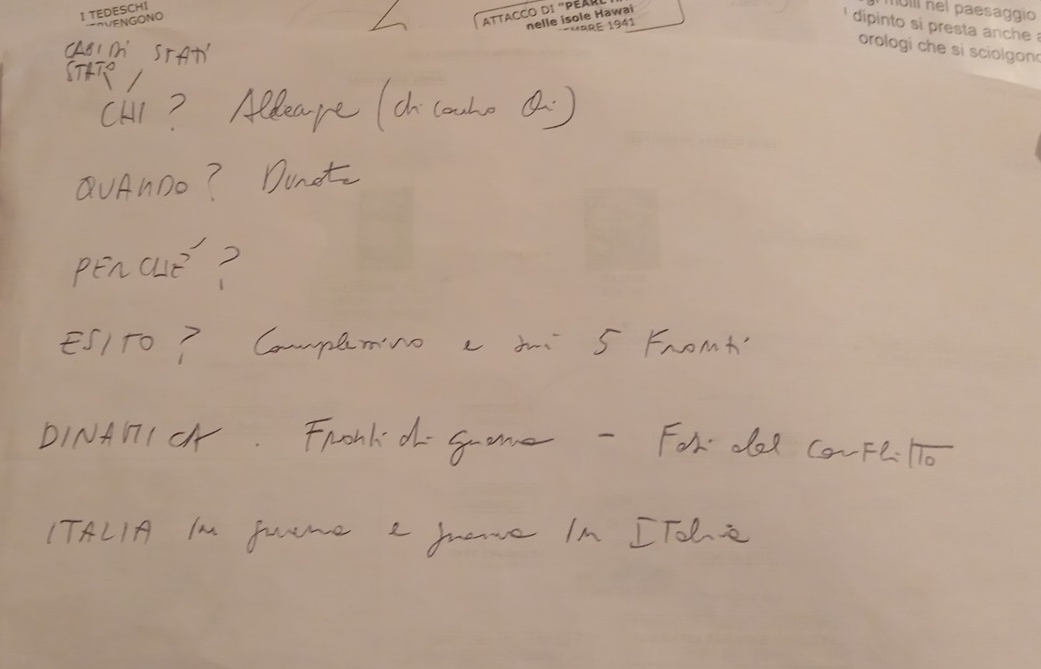 I TEDESCHI
ATTACCO DI "PEARL
nelle isole Hawai
MBRE 1941
molli nel paesaggio
dipinto si presta anche a
orologi che si sciolgono
CAPI DI STATI
STATO
CHI ? Alleanze (chi contro chi)
QUANDO ? Durata
PERCHÉ ?
ESITO ? Complessivo e sui 5 Fronti
DINAMICA . Fronti di guerra - Fasi del conflitto
ITALIA in guerra e guerra in ITalia